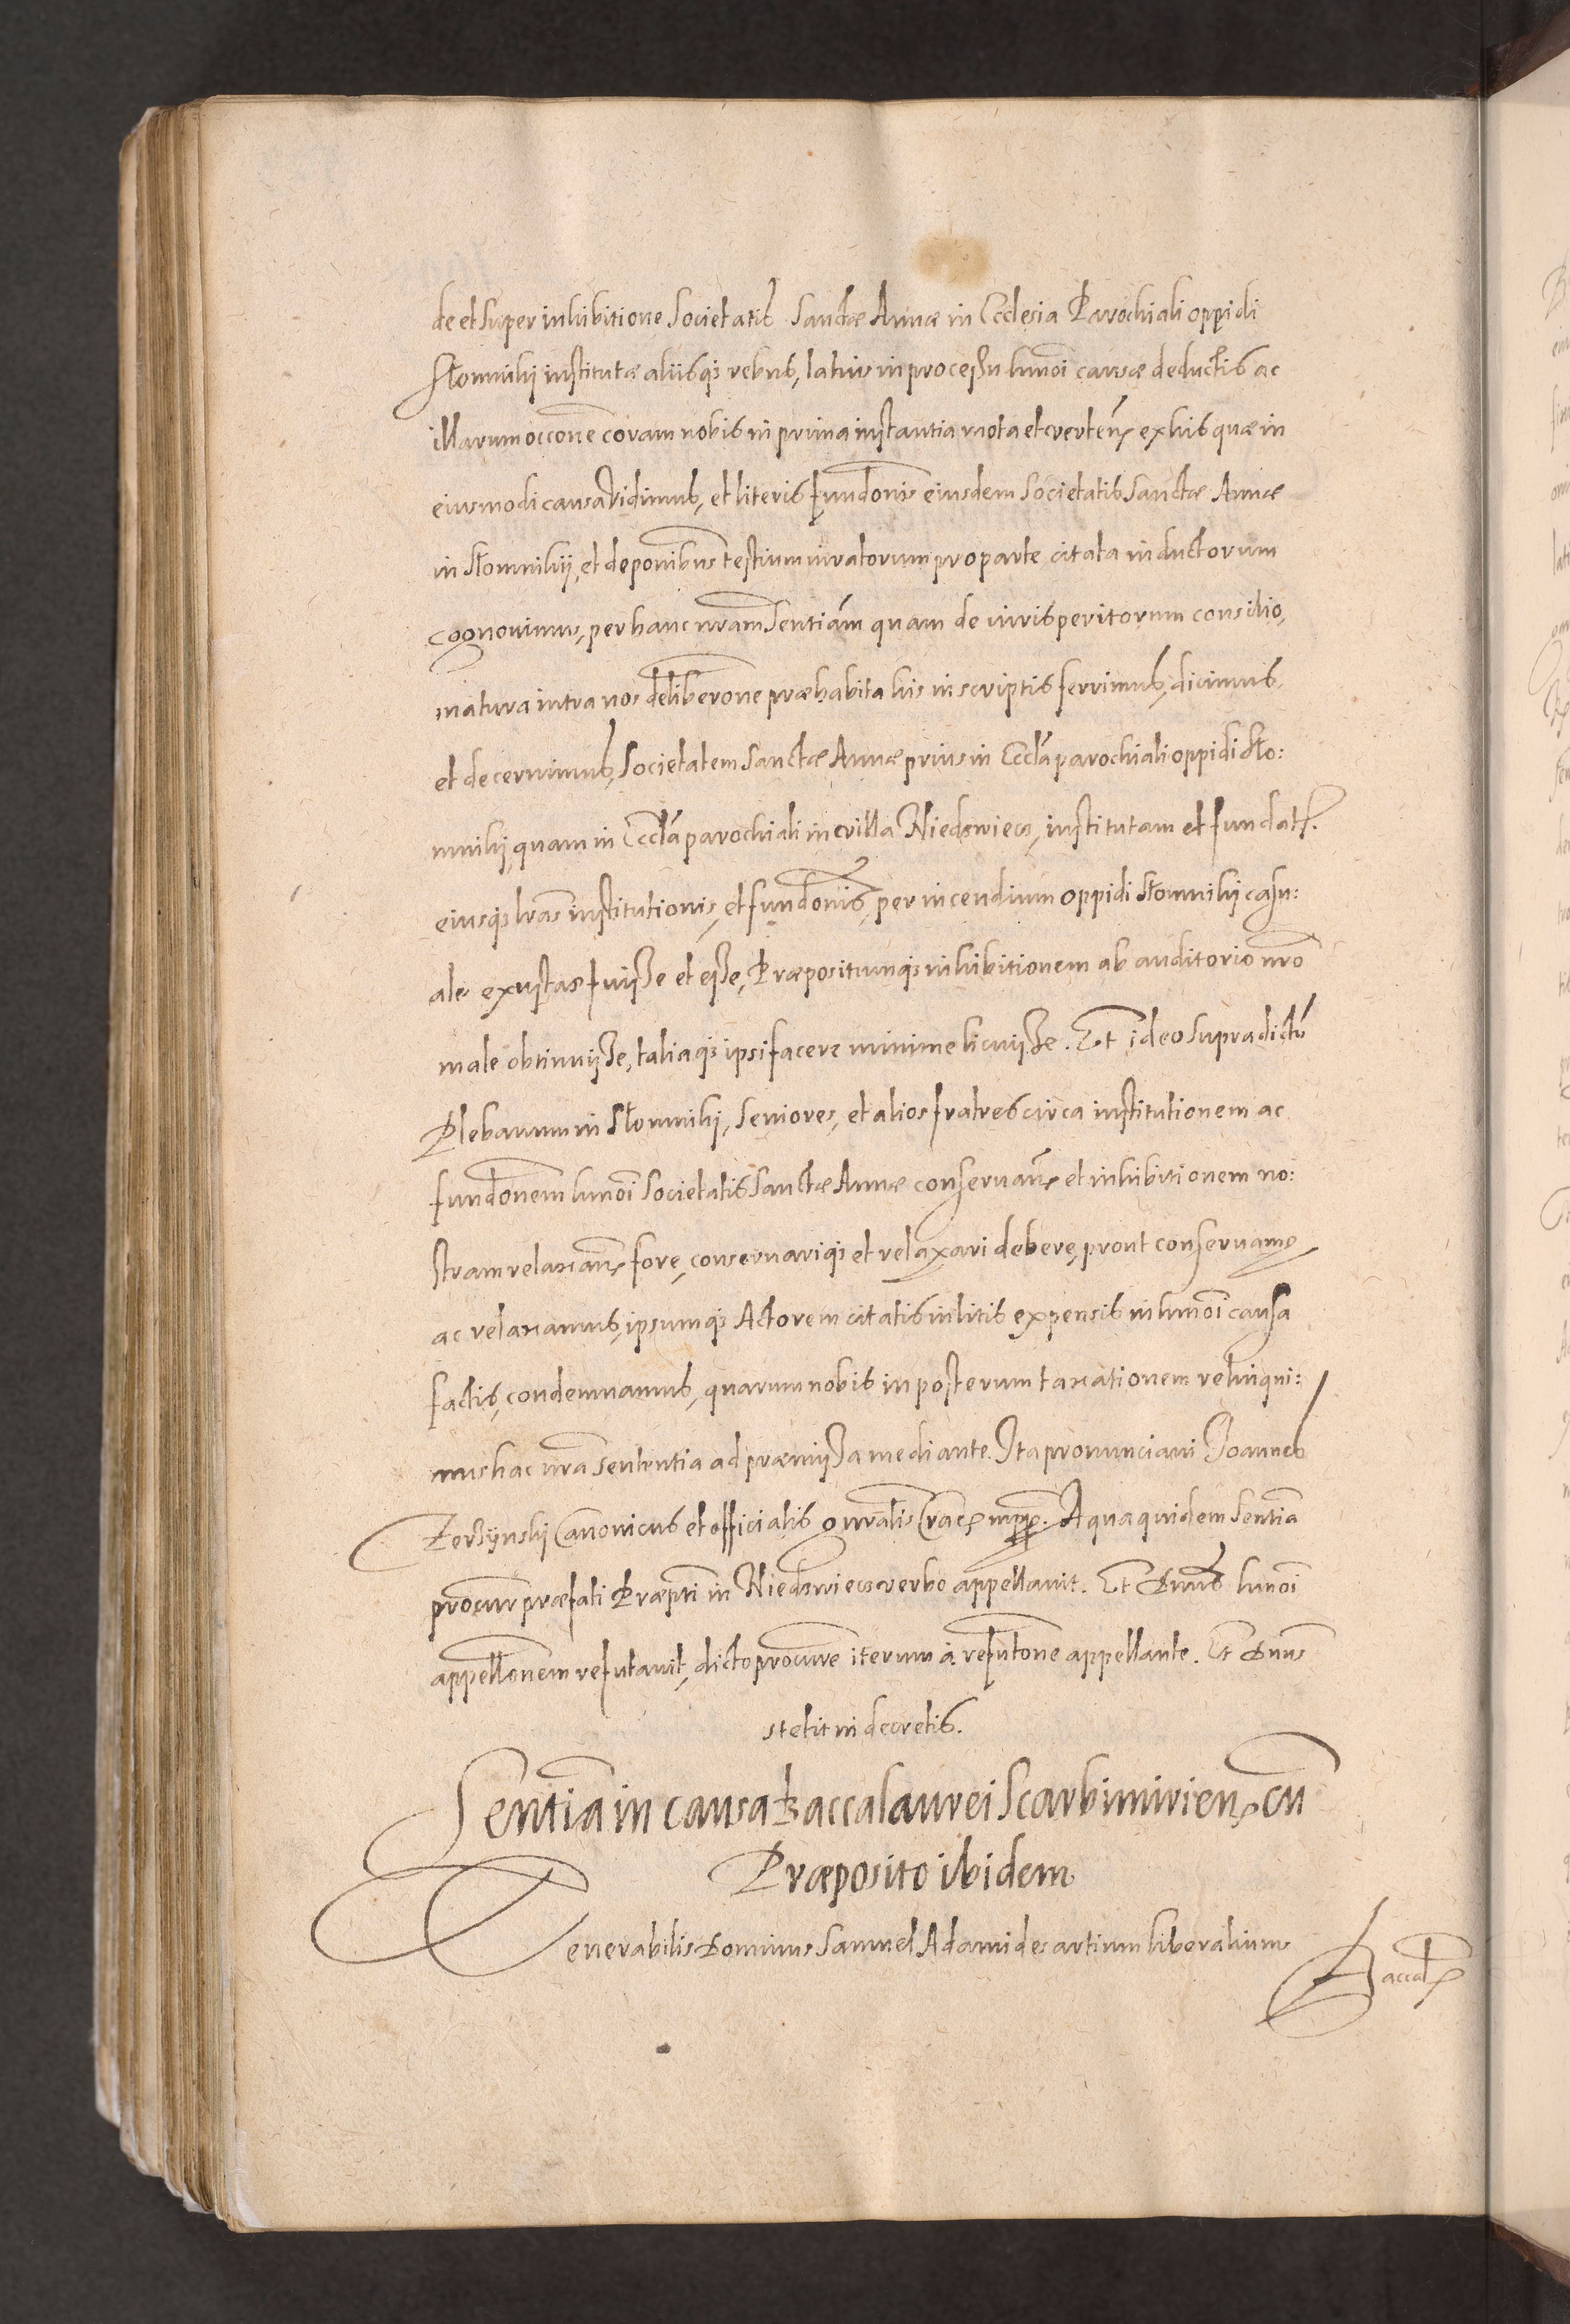 de et super inhibitione Societatis Sanctæ Annæ in Ecclesia Parochiali oppidi
Słomniky institutæ aliisq; rebus, latius in processu hmoi causæ deductis ac
illarum occone coram nobis in prima instantia mota et verten. ex his quæ in
eiusmodi causa vidimus, et literis fundonis eiusdem Societatis Sanctæ Annæ
in Słomnikij, et deponibus testium iuratorum pro parte citata inductorum
cognouimus, per hanc nram sentiam quam de iuris peritorum consilio,
matura intra nos deliberone præhabita his in scriptis ferrimus, dicimus,
et decernimus, Societatem Sanctæ Annæ prius in Eccla parochiali oppidi Sło:
mnikij, quam in Eccla parochiali in villa Niedzwiecz, institutam et fundat.
eiusq; lras institutionis, et fundonis, per incendium oppidi Słomnikij casu:
ale exustas fuisse et esse, Præpositumq; inhibitionem ab auditorio nro
male obtinuisse, taliaq; ipsi facere minime licuisse. Et ideo supradictu
Plebanum in Słomnikij, Seniores, et alios fratres circa institutionem ac
fundonem hmoi Societatis Sanctæ Annæ conseruan. et inhibitionem no:
stram relaxan. fore, conseruariq; et relaxari debere, prout conseruam9
ac relaxamus, ipsumq; Actorem citatis in litis expensis in hmoi causa
factis, condemnamus, quarum nobis in posterum taxationem relinqui:
mus hac nra sententia ad præmissa mediante. Ita pronunciaui Joannes
Zerzÿnskij Canonicus et officialis gnralis Crac. mpp. A qua quidem sentia
procur præfati Præpti in Niedzwiecz verbo appellauit. Et Dnus hmoi
appellonem refutauit, dicto procure iterum à refutone appellante. Et Dnus
stetit in decretis.
Sentia in causa baccalaurei Scarbimirien. cu
Præposito ibidem
Venerabilis Dominus Samuel Adamides artium liberalium
Baccal.